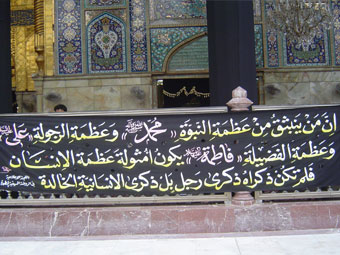 ان من ينبثق من عظمة النبوة «محمد» وعظمة الرجولة «علي»
وعظمة الفضيلة «فاطمة» يكون امثولة عظمة الانسان
فلم تكن ذكراه ذكرى رجل بل ذكرى الانسانية الخالدة